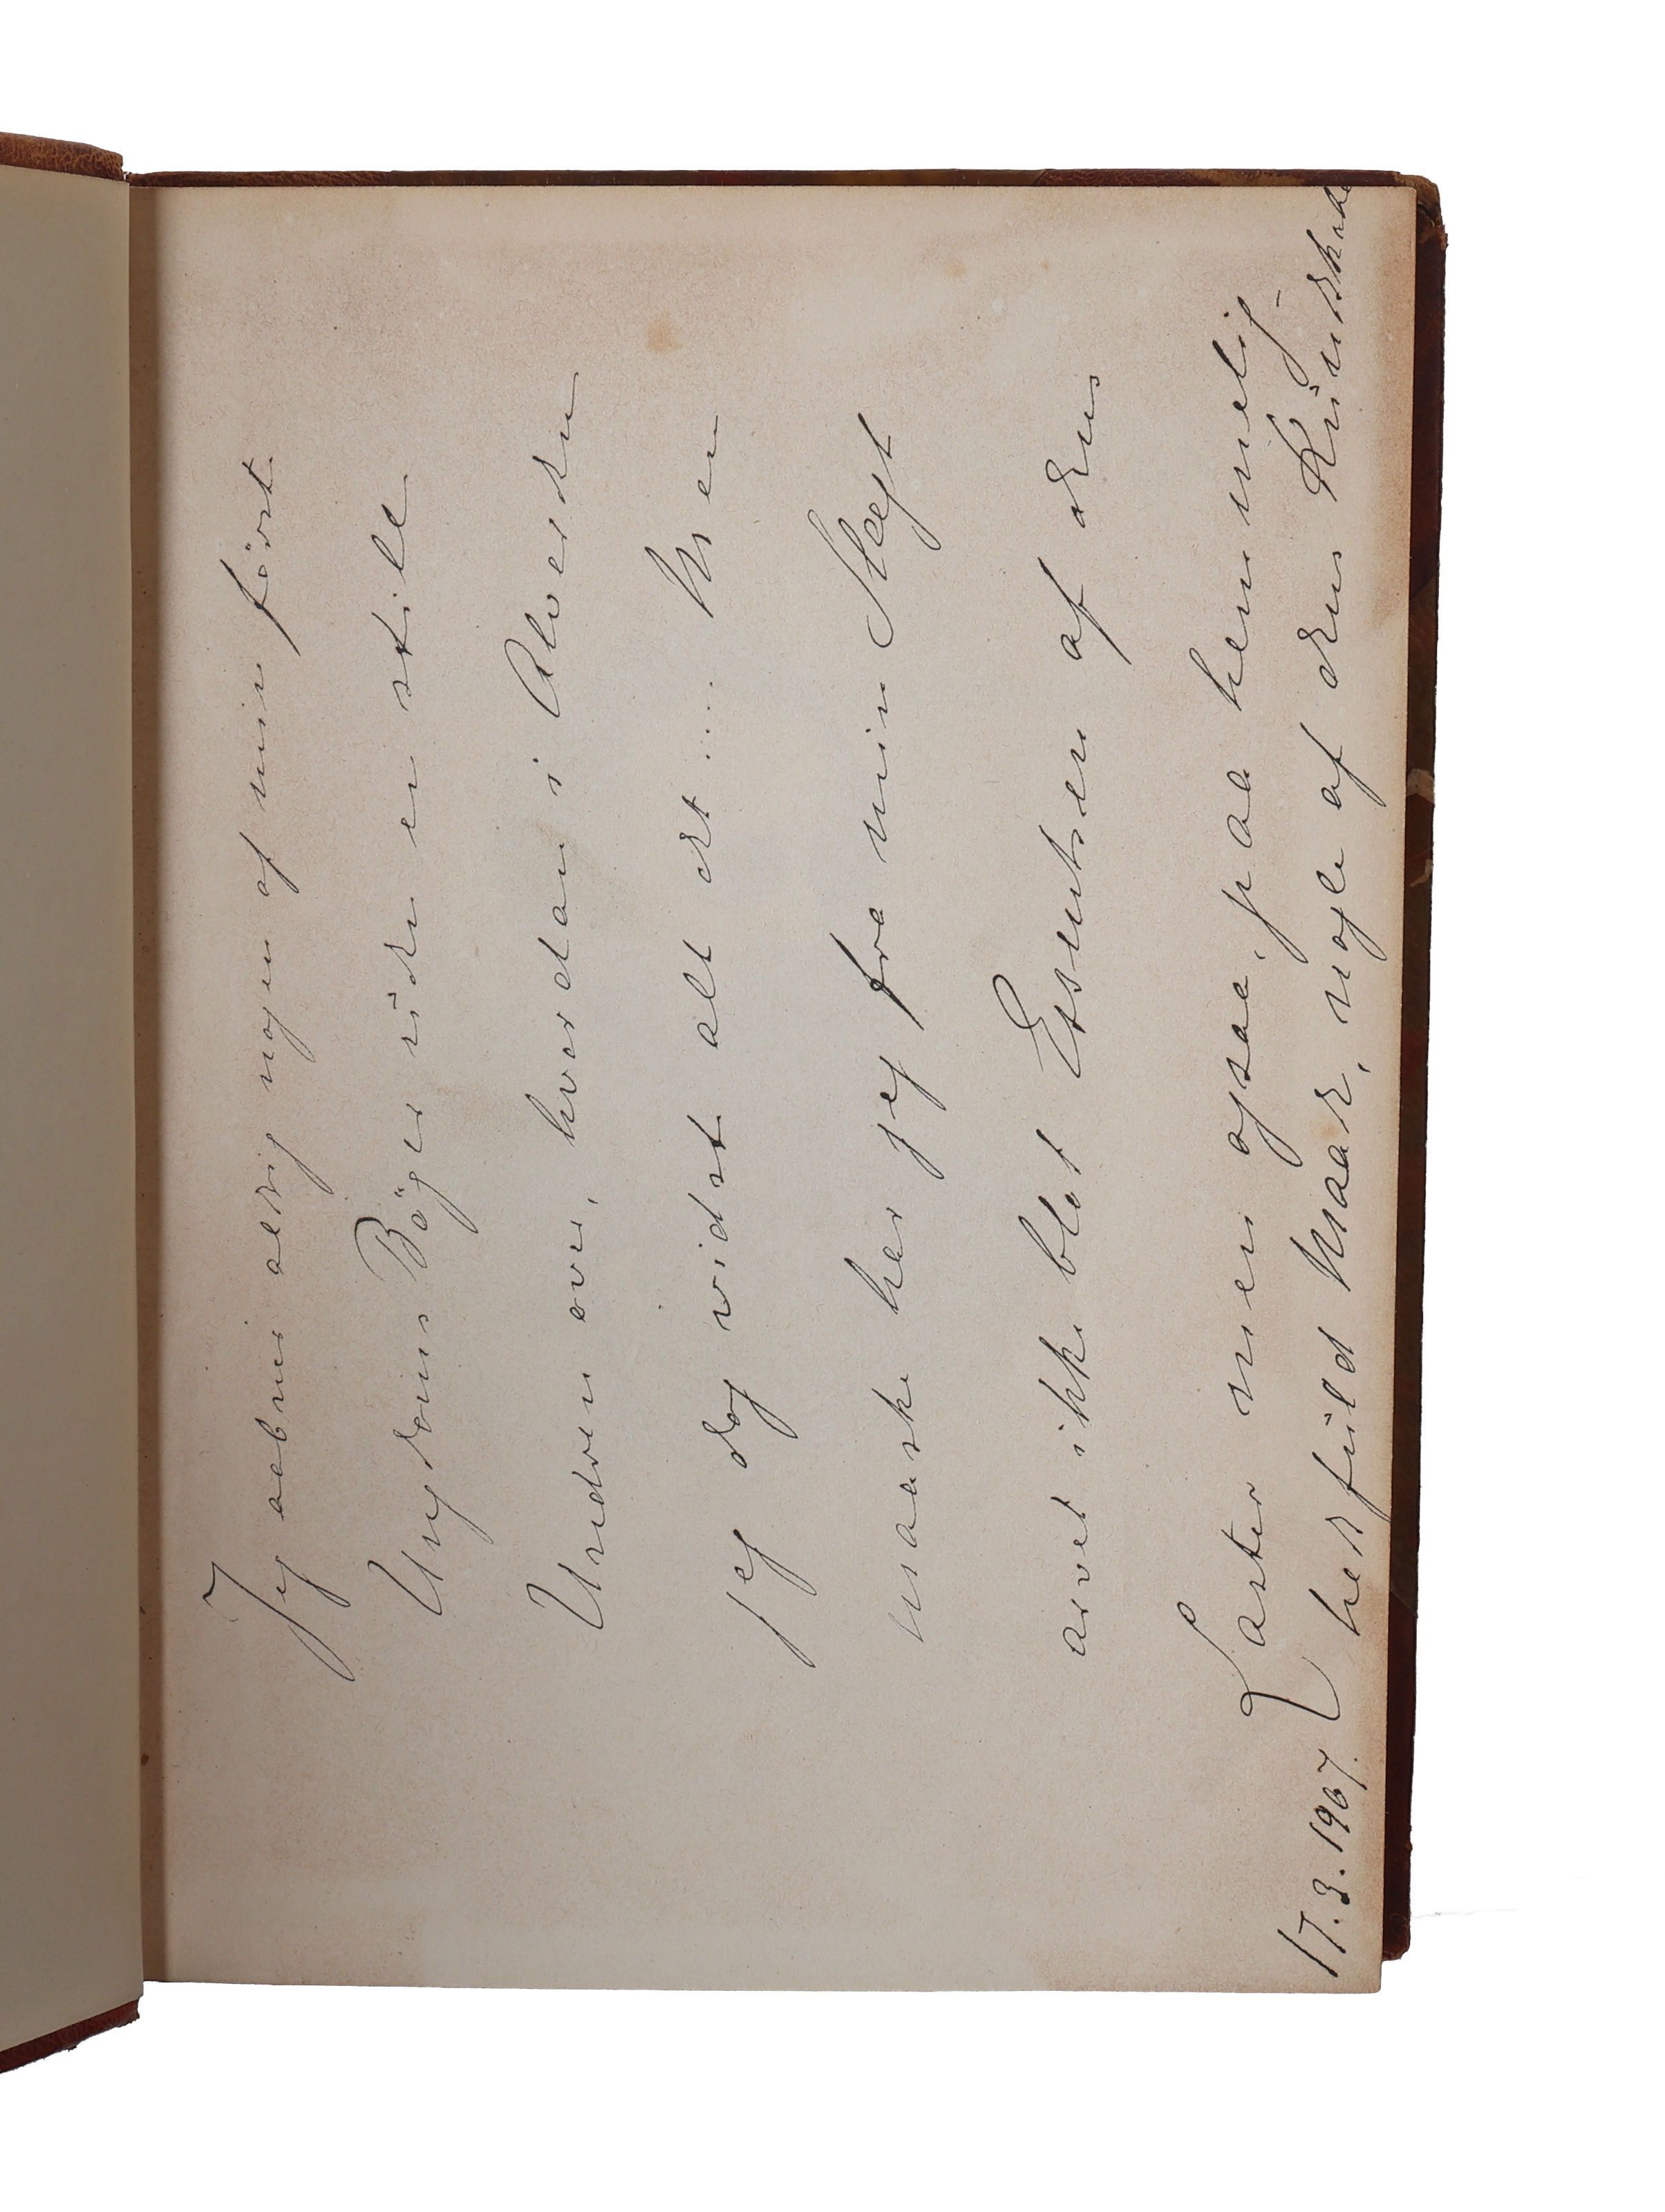 Jeg aabner aldrig nogen af min först
Ungdoms Böger uden en stille
Undren over, hvordan i Alverden
jeg dog vidst alt det.... Men
maaske har jeg fra min Slægt
arvet ikke blot Essentsen af dens
Laster men ogsaa, paa hemmelig-
hedsfuld Maade, nogle af dens Kundskaber
17.3.1907.